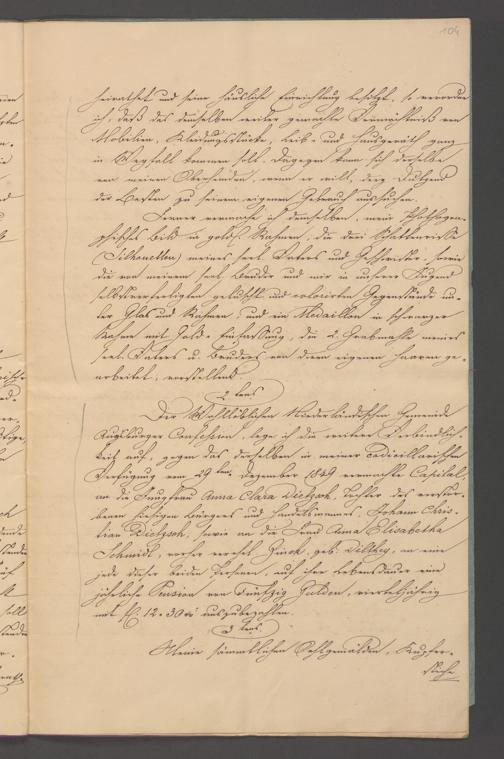 104
heirathet und seine häusliche Einrichtung besitzt, so verordne
ich, daß das demselben weiter gemachte Vermächtniß von
Mobilien, Kleidungsstücke, Leib- und Hausgeräth ganz
in Wegfall kommen soll. Dagegen kann sich derselbe
von meinen Oberhemden, wenn er will, drey Dutzend
der Besten zu seinem eigenen Gebrauch aussuchen.
Ferner vermache ich demselben, mein Photogra-
phisches Bild in gold. Rahmen, die drei Schattenrisse
(Silhouetten) meines seel. Vaters und Geschwister, sowie
die von meinem seel. Bruder und mir in unserer Jugend
selbstverfertigten und colorirten Gegenstände un-
ter Glas und Rahmen, und ein Medaillon in schwarzer
Rahme mit Gold-Einfassung, die 2 Grabmahle meines
seel. Vaters u. Bruders von deren eigenen Haaren ge-
arbeitet, vorstellend.
2tens
Der Wohllöblichen Niederländischen Gemeinde
Augsburger Confession, lege ich die weitere Verbindlich-
keit auf, gegen das derselben in meiner Codicillarischen
Verfügung vom 29ten Dezember 1849 vermachte Capital,
an die Jungfrau Anna Clara Dietzsch, Tochter des verstor-
benen hiesigen Bürgers und Handelsmannes, Johann Chris-
tian Dietzsch, sowie an die Frau Anna Elisabetha
Schmidt, vorher verehel. geb. Dilthey, an eine
jede dieser beiden Personen, auf ihre Lebensdauer eine
jährliche Pension von Fünfzig Gulden, vierteljährig
mit f 12.30 xr auszubezahlen.
3tens
Meine sämmtlichen Oehlgemälden, Kupfer-
stiche